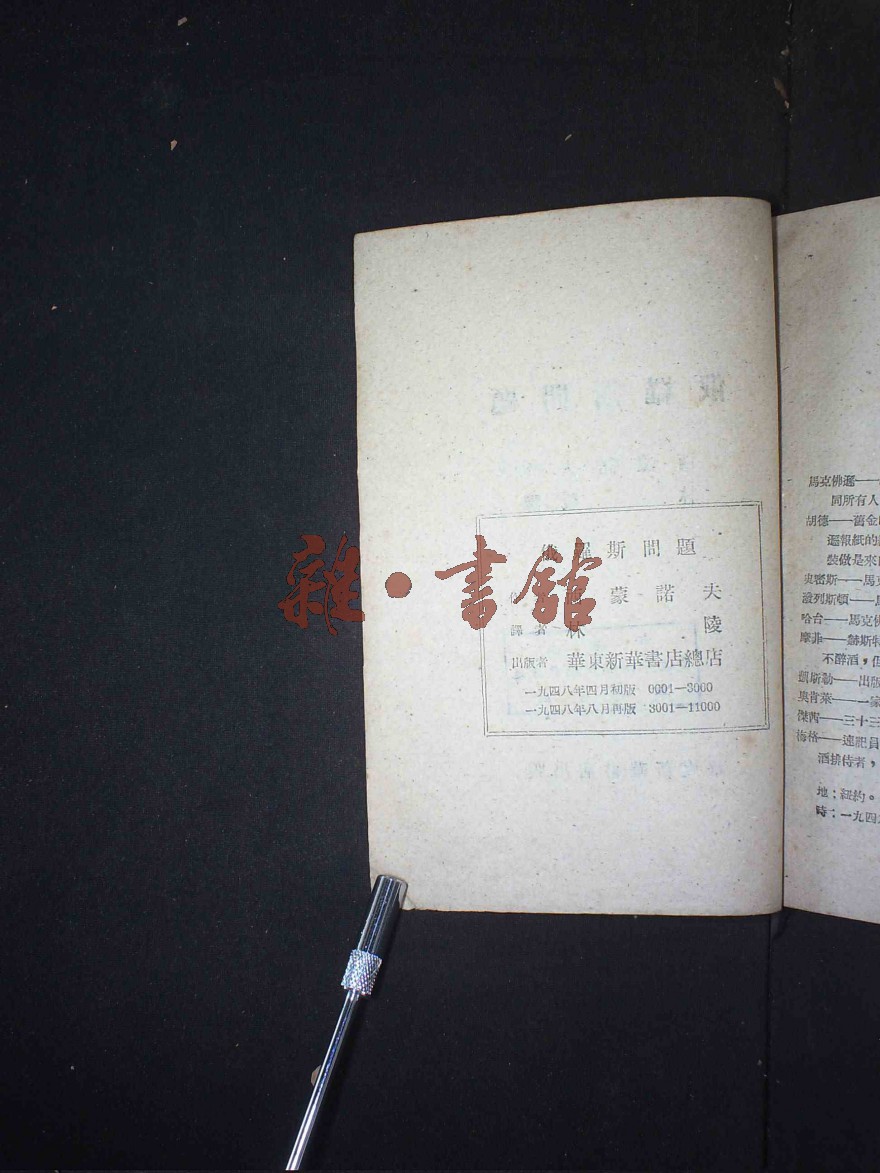 俄羅斯問題
蒙諾夫
譯者 林 陵
出版者 華東新華書店總店
一九四八年四月初版 0001—3000
一九四八年八月再版 3001—11000
雜·書館
馬克佛遜——
同所有人
胡德——
遜報紙的
裝做是來
史密斯——馬克
潑列斯頓——
哈台——馬克佛
摩菲——赫斯特
不醉酒,但
凱斯勒——出版
奧肯萊——一家
傑西——三十三
梅格——速記員
酒排侍者,
地:紐約。
時:一九四